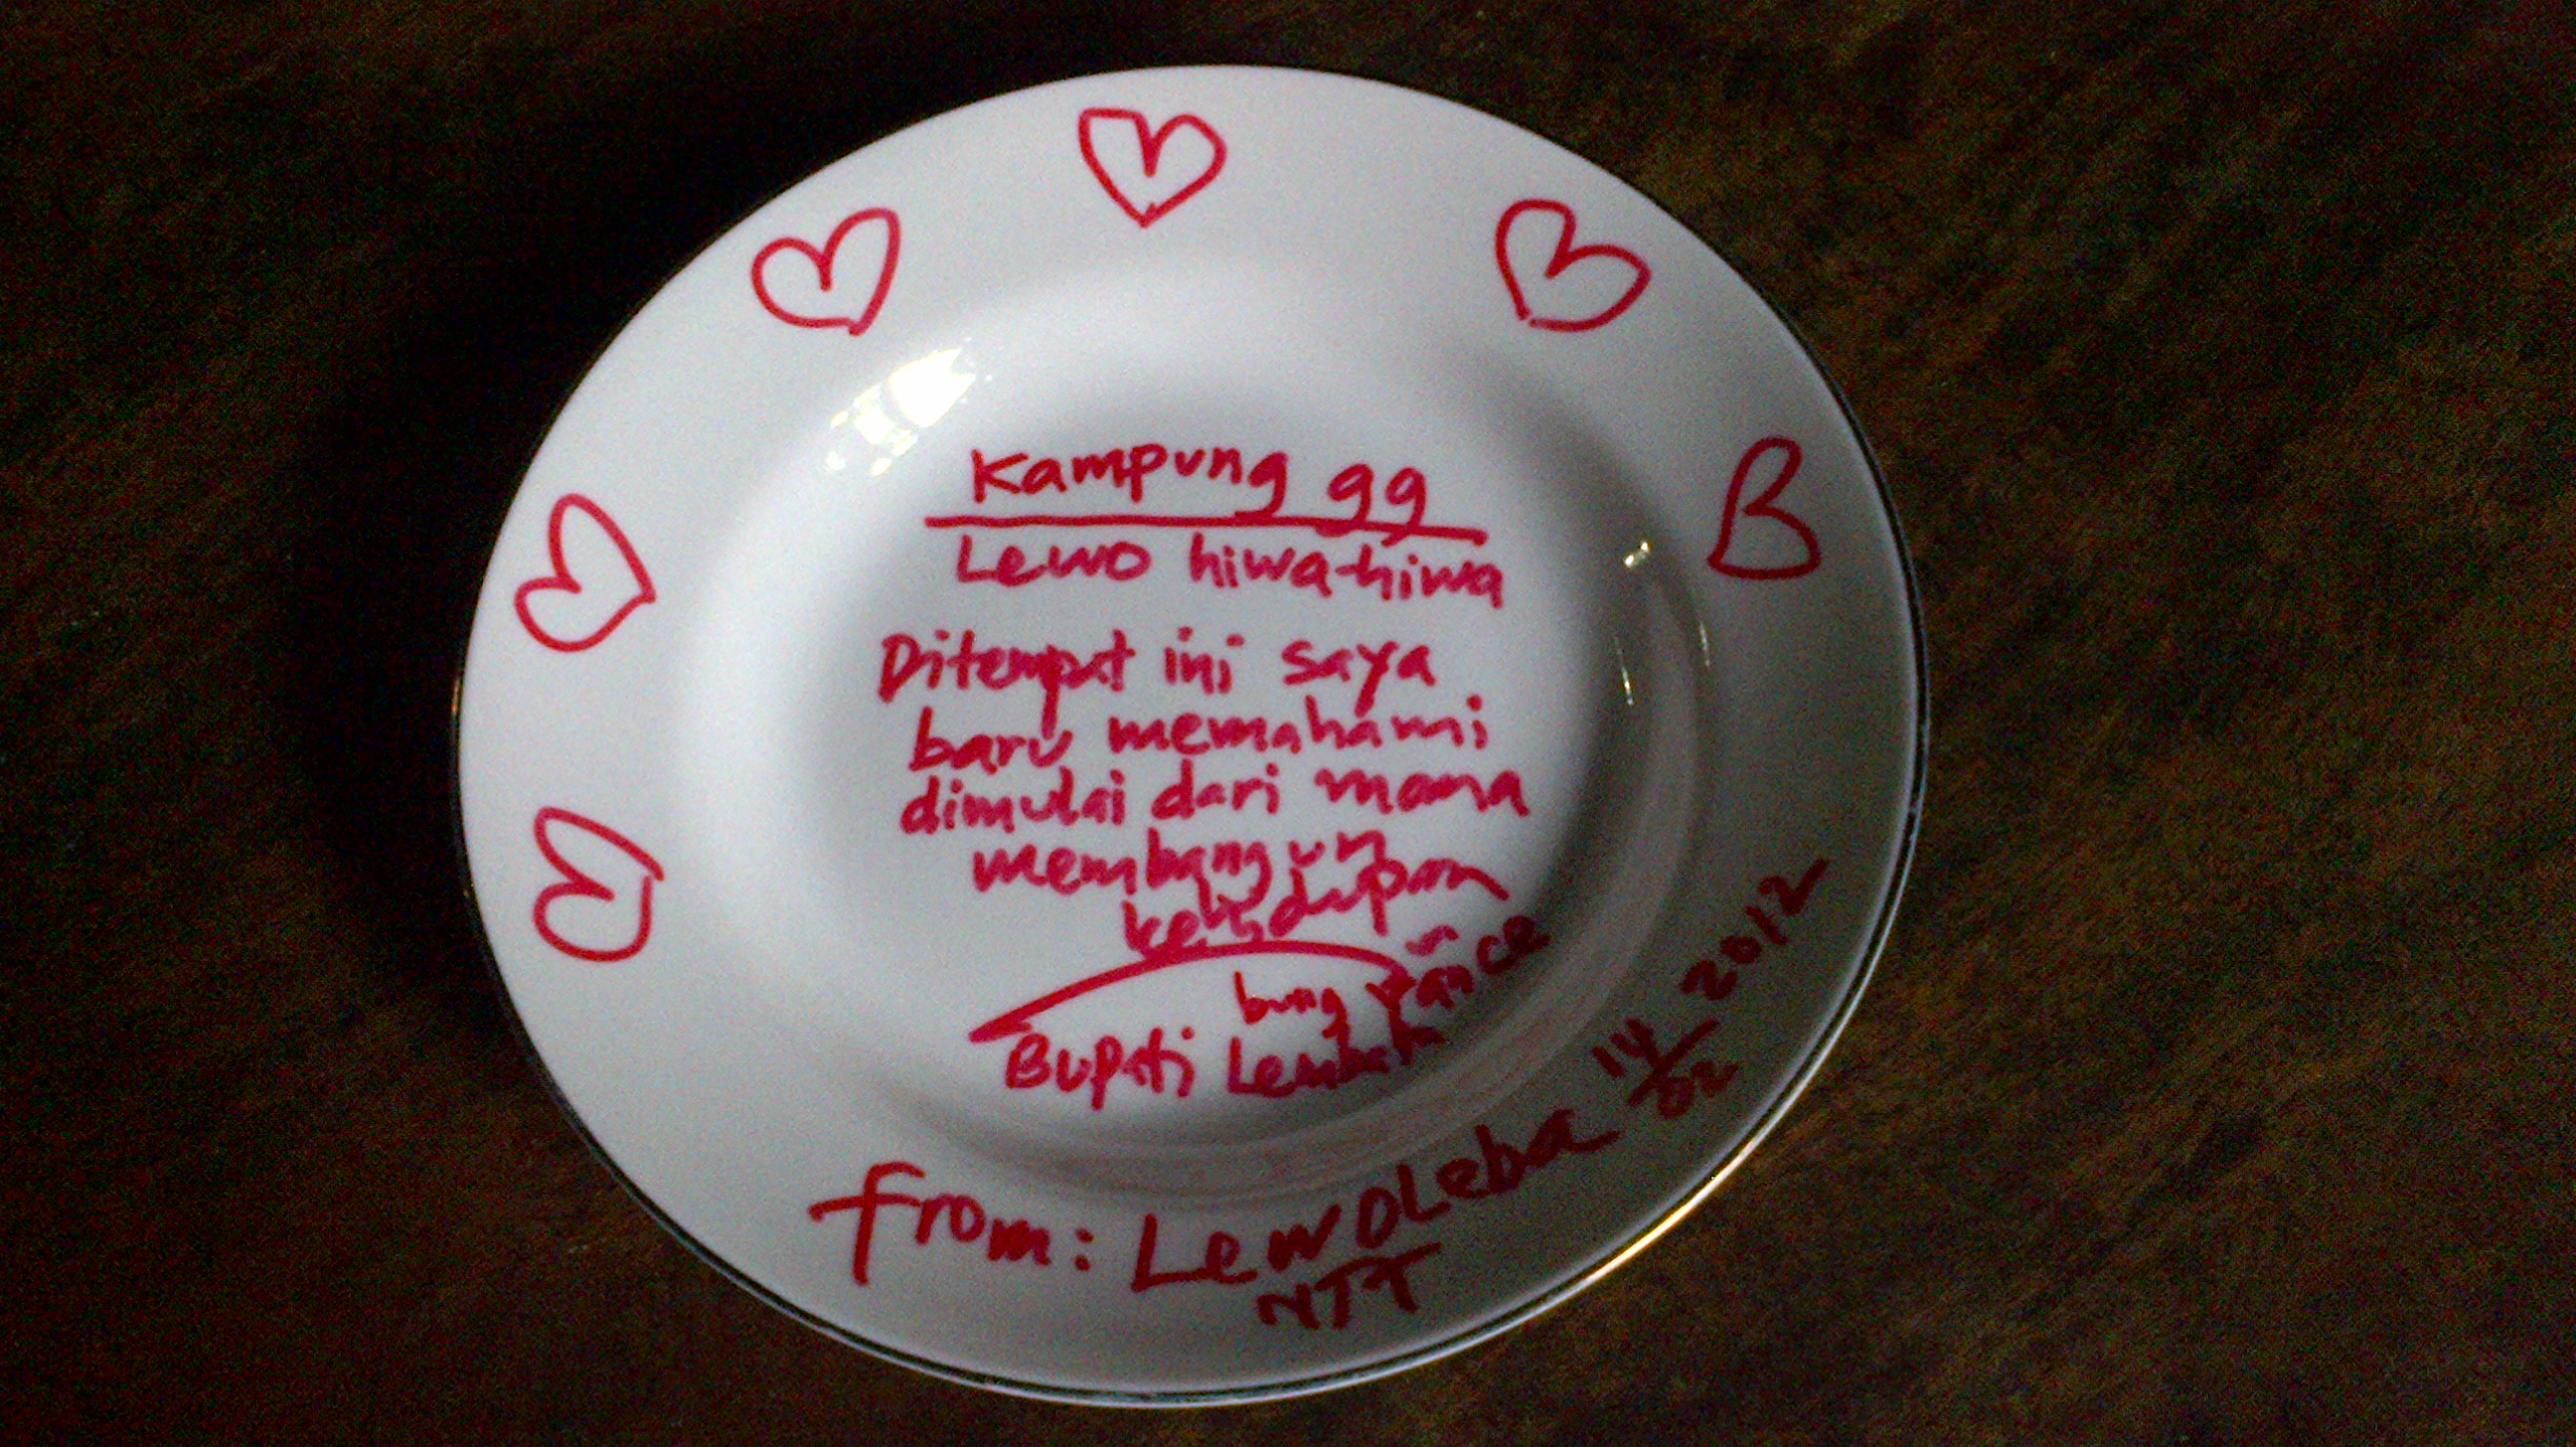 Kampung 99
Lewo hiwa-hiwa
Ditempat ini saya
baru memahami
dimulai dari mana
membangun
kehidupan
bung Yance
Bupati Lembata
from: Lewoleba 14/02 2012
NTT